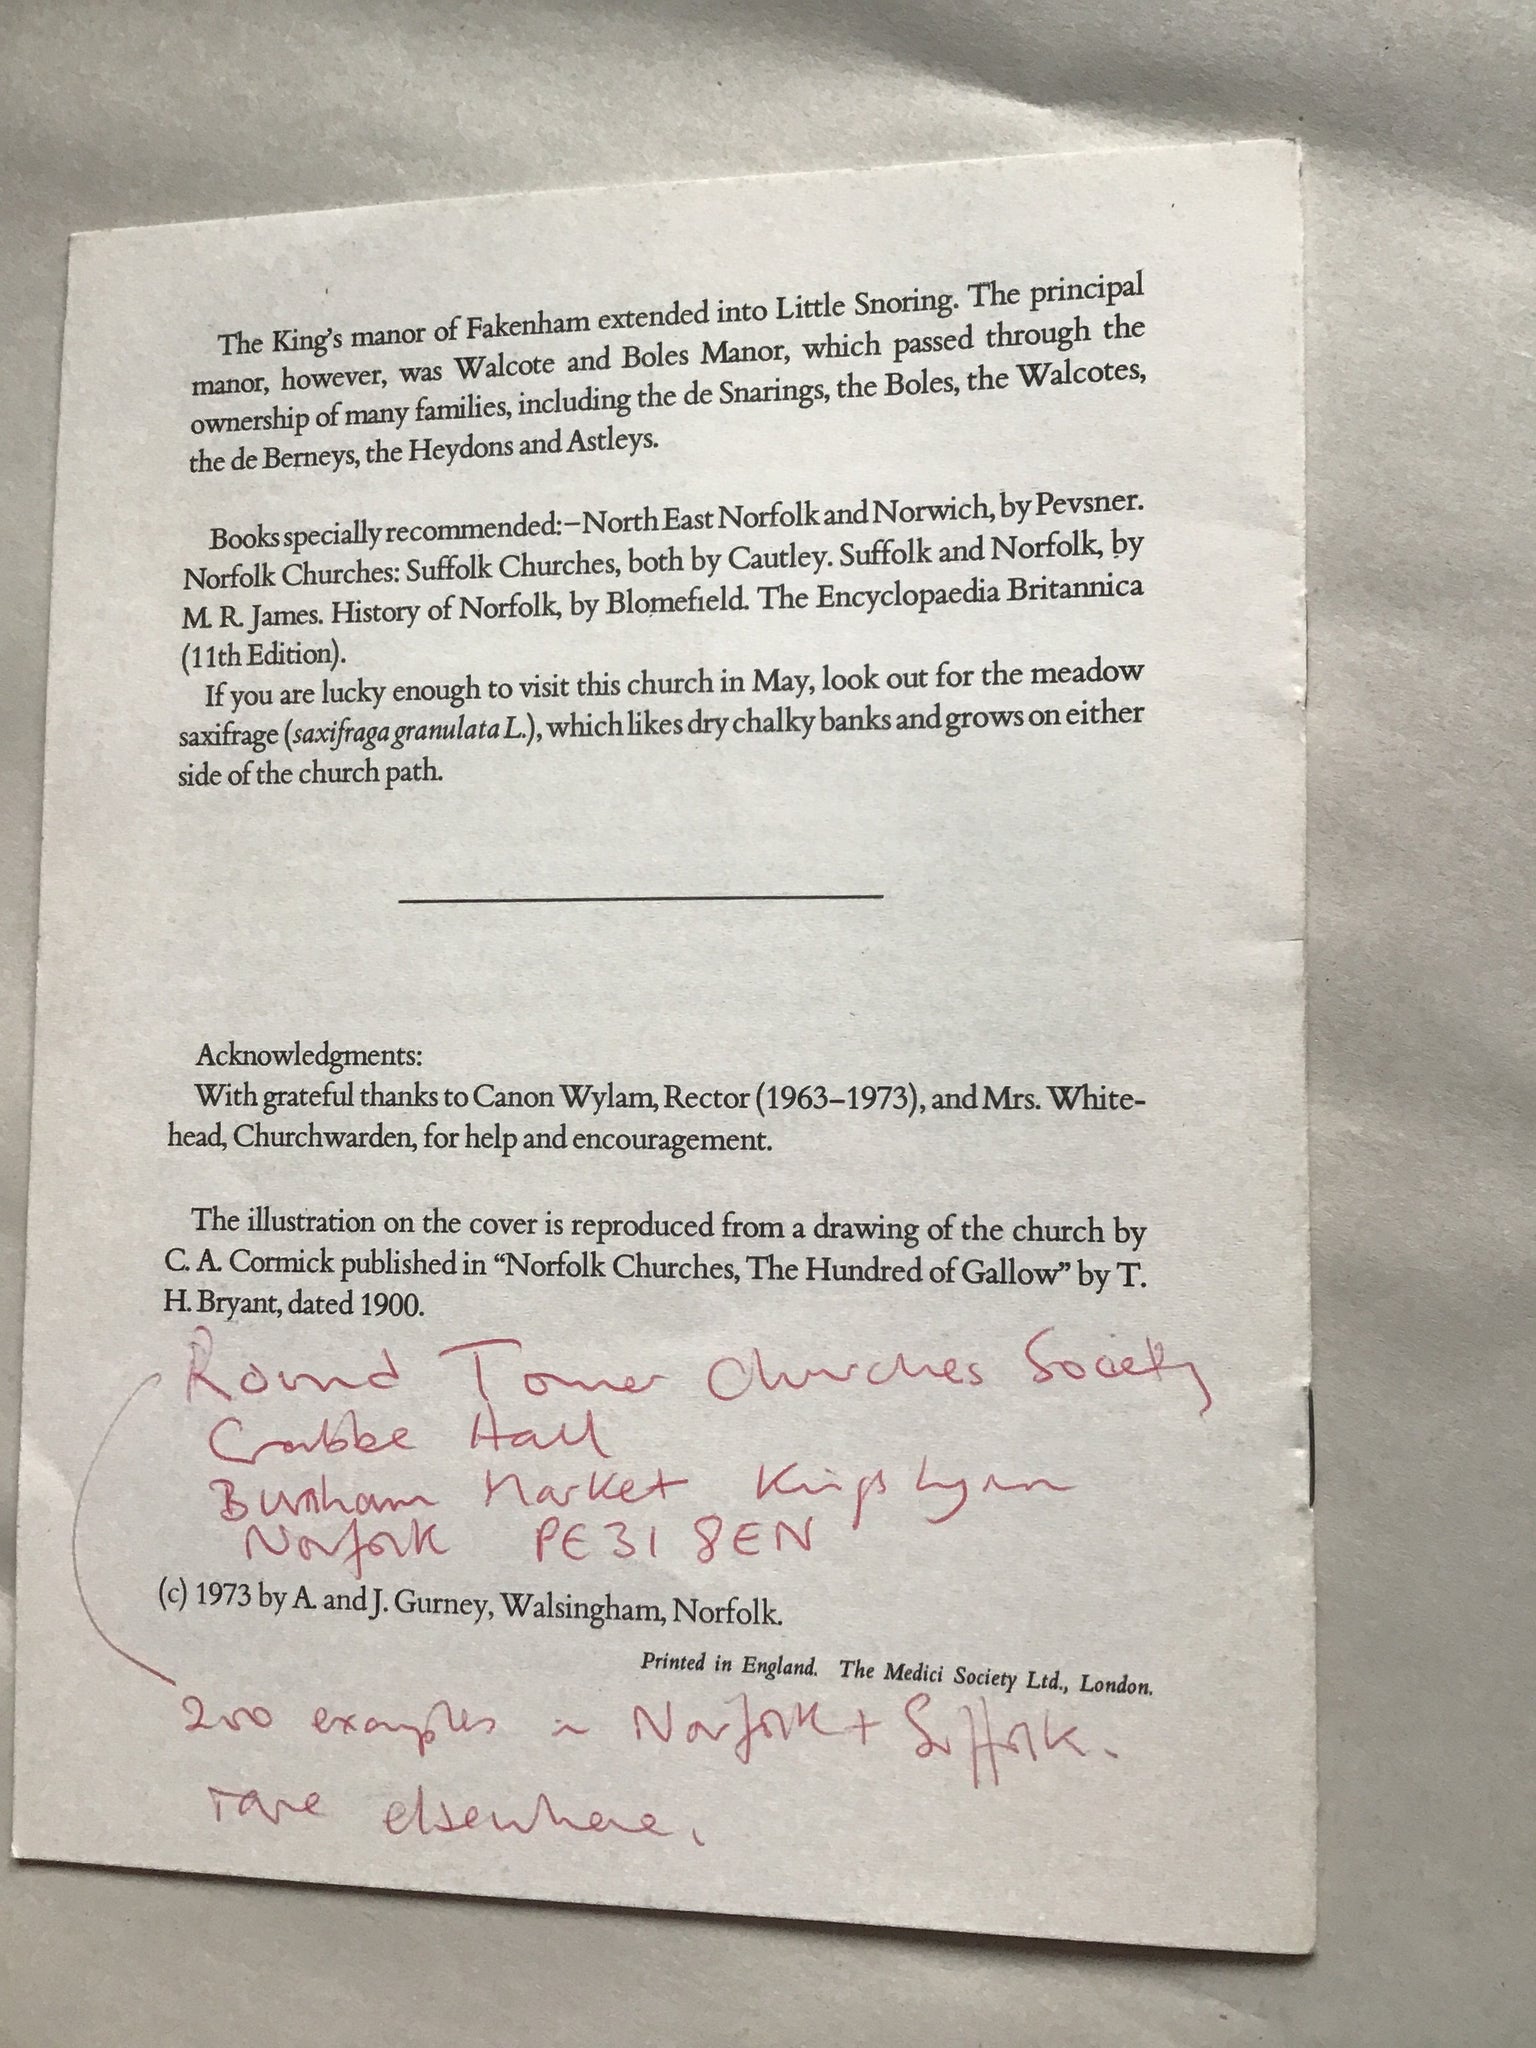 The King's manor of Fakenham extended into Little Snoring. The principal
manor, however, was Walcote and Boles Manor, which passed through the
ownership of many families, including the de Snarings, the Boles, the Walcotes,
the de Berneys, the Heydons and Astleys.
Books specially recommended:–North East Norfolk and Norwich, by Pevsner.
Norfolk Churches: Suffolk Churches, both by Cautley. Suffolk and Norfolk, by
M. R. James. History of Norfolk, by Blomefield. The Encyclopaedia Britannica
(11th Edition).
If you are lucky enough to visit this church in May, look out for the meadow
saxifrage (saxifraga granulata L.), which likes dry chalky banks and grows on either
side of the church path.
Acknowledgments:
With grateful thanks to Canon Wylam, Rector (1963–1973), and Mrs. White-
head, Churchwarden, for help and encouragement.
The illustration on the cover is reproduced from a drawing of the church by
C. A. Cormick published in “Norfolk Churches, The Hundred of Gallow” by T.
H. Bryant, dated 1900.
Round Tower Churches Society
Crabbe Hall
Burnham Market Kings Lynn
Norfolk PE31 8EN
(c) 1973 by A. and J. Gurney, Walsingham, Norfolk.
Printed in England. The Medici Society Ltd., London.
200 examples in Norfolk + Suffolk.
rare elsewhere.